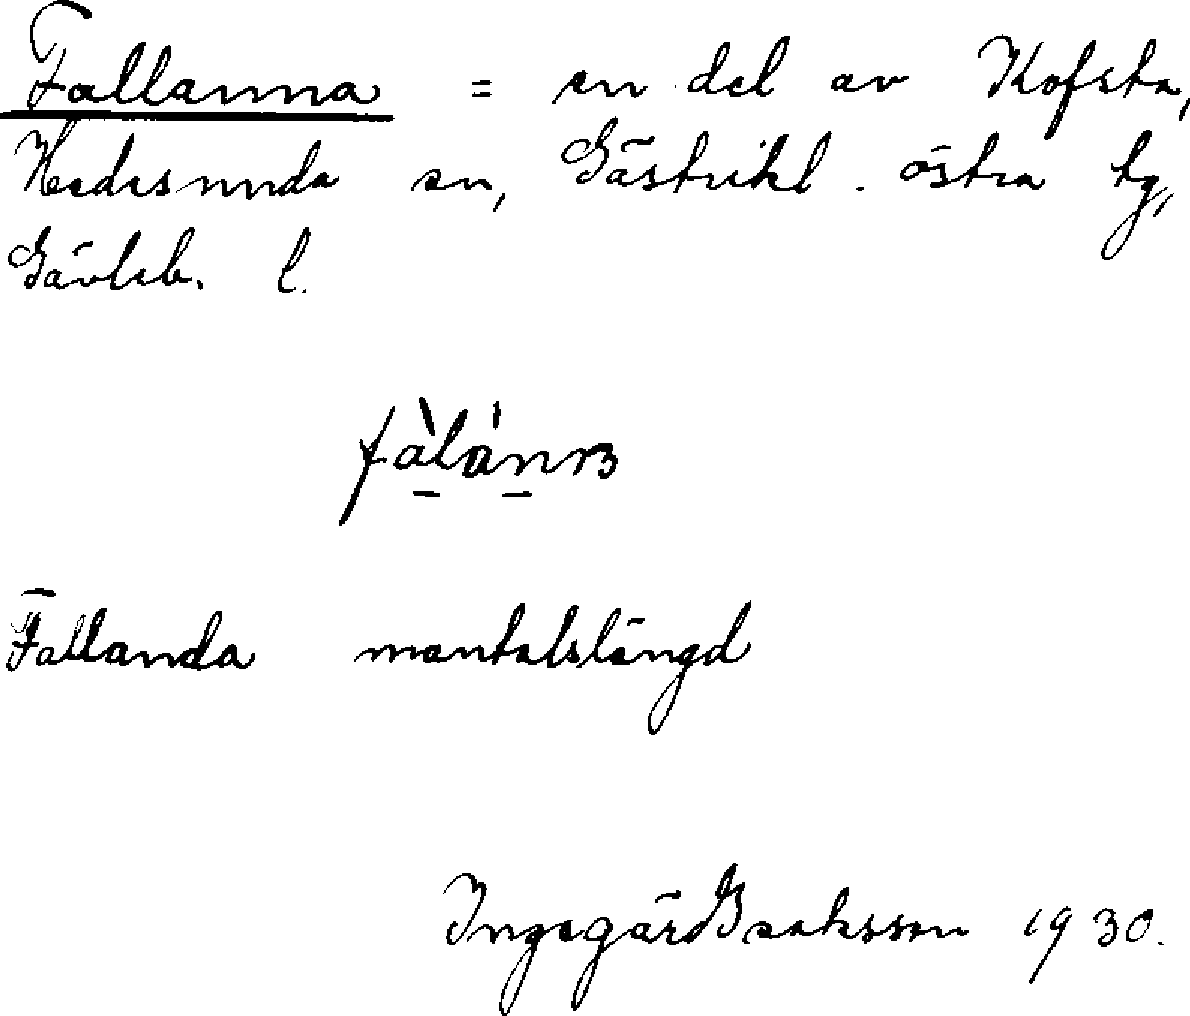 Fallanna = en del av Kofsta,
Hedesunda sn, Gästrikl. östra tg,
Gävleb. l.
Fallanda mantalslängd
Ingegärd Isaksson 1930.